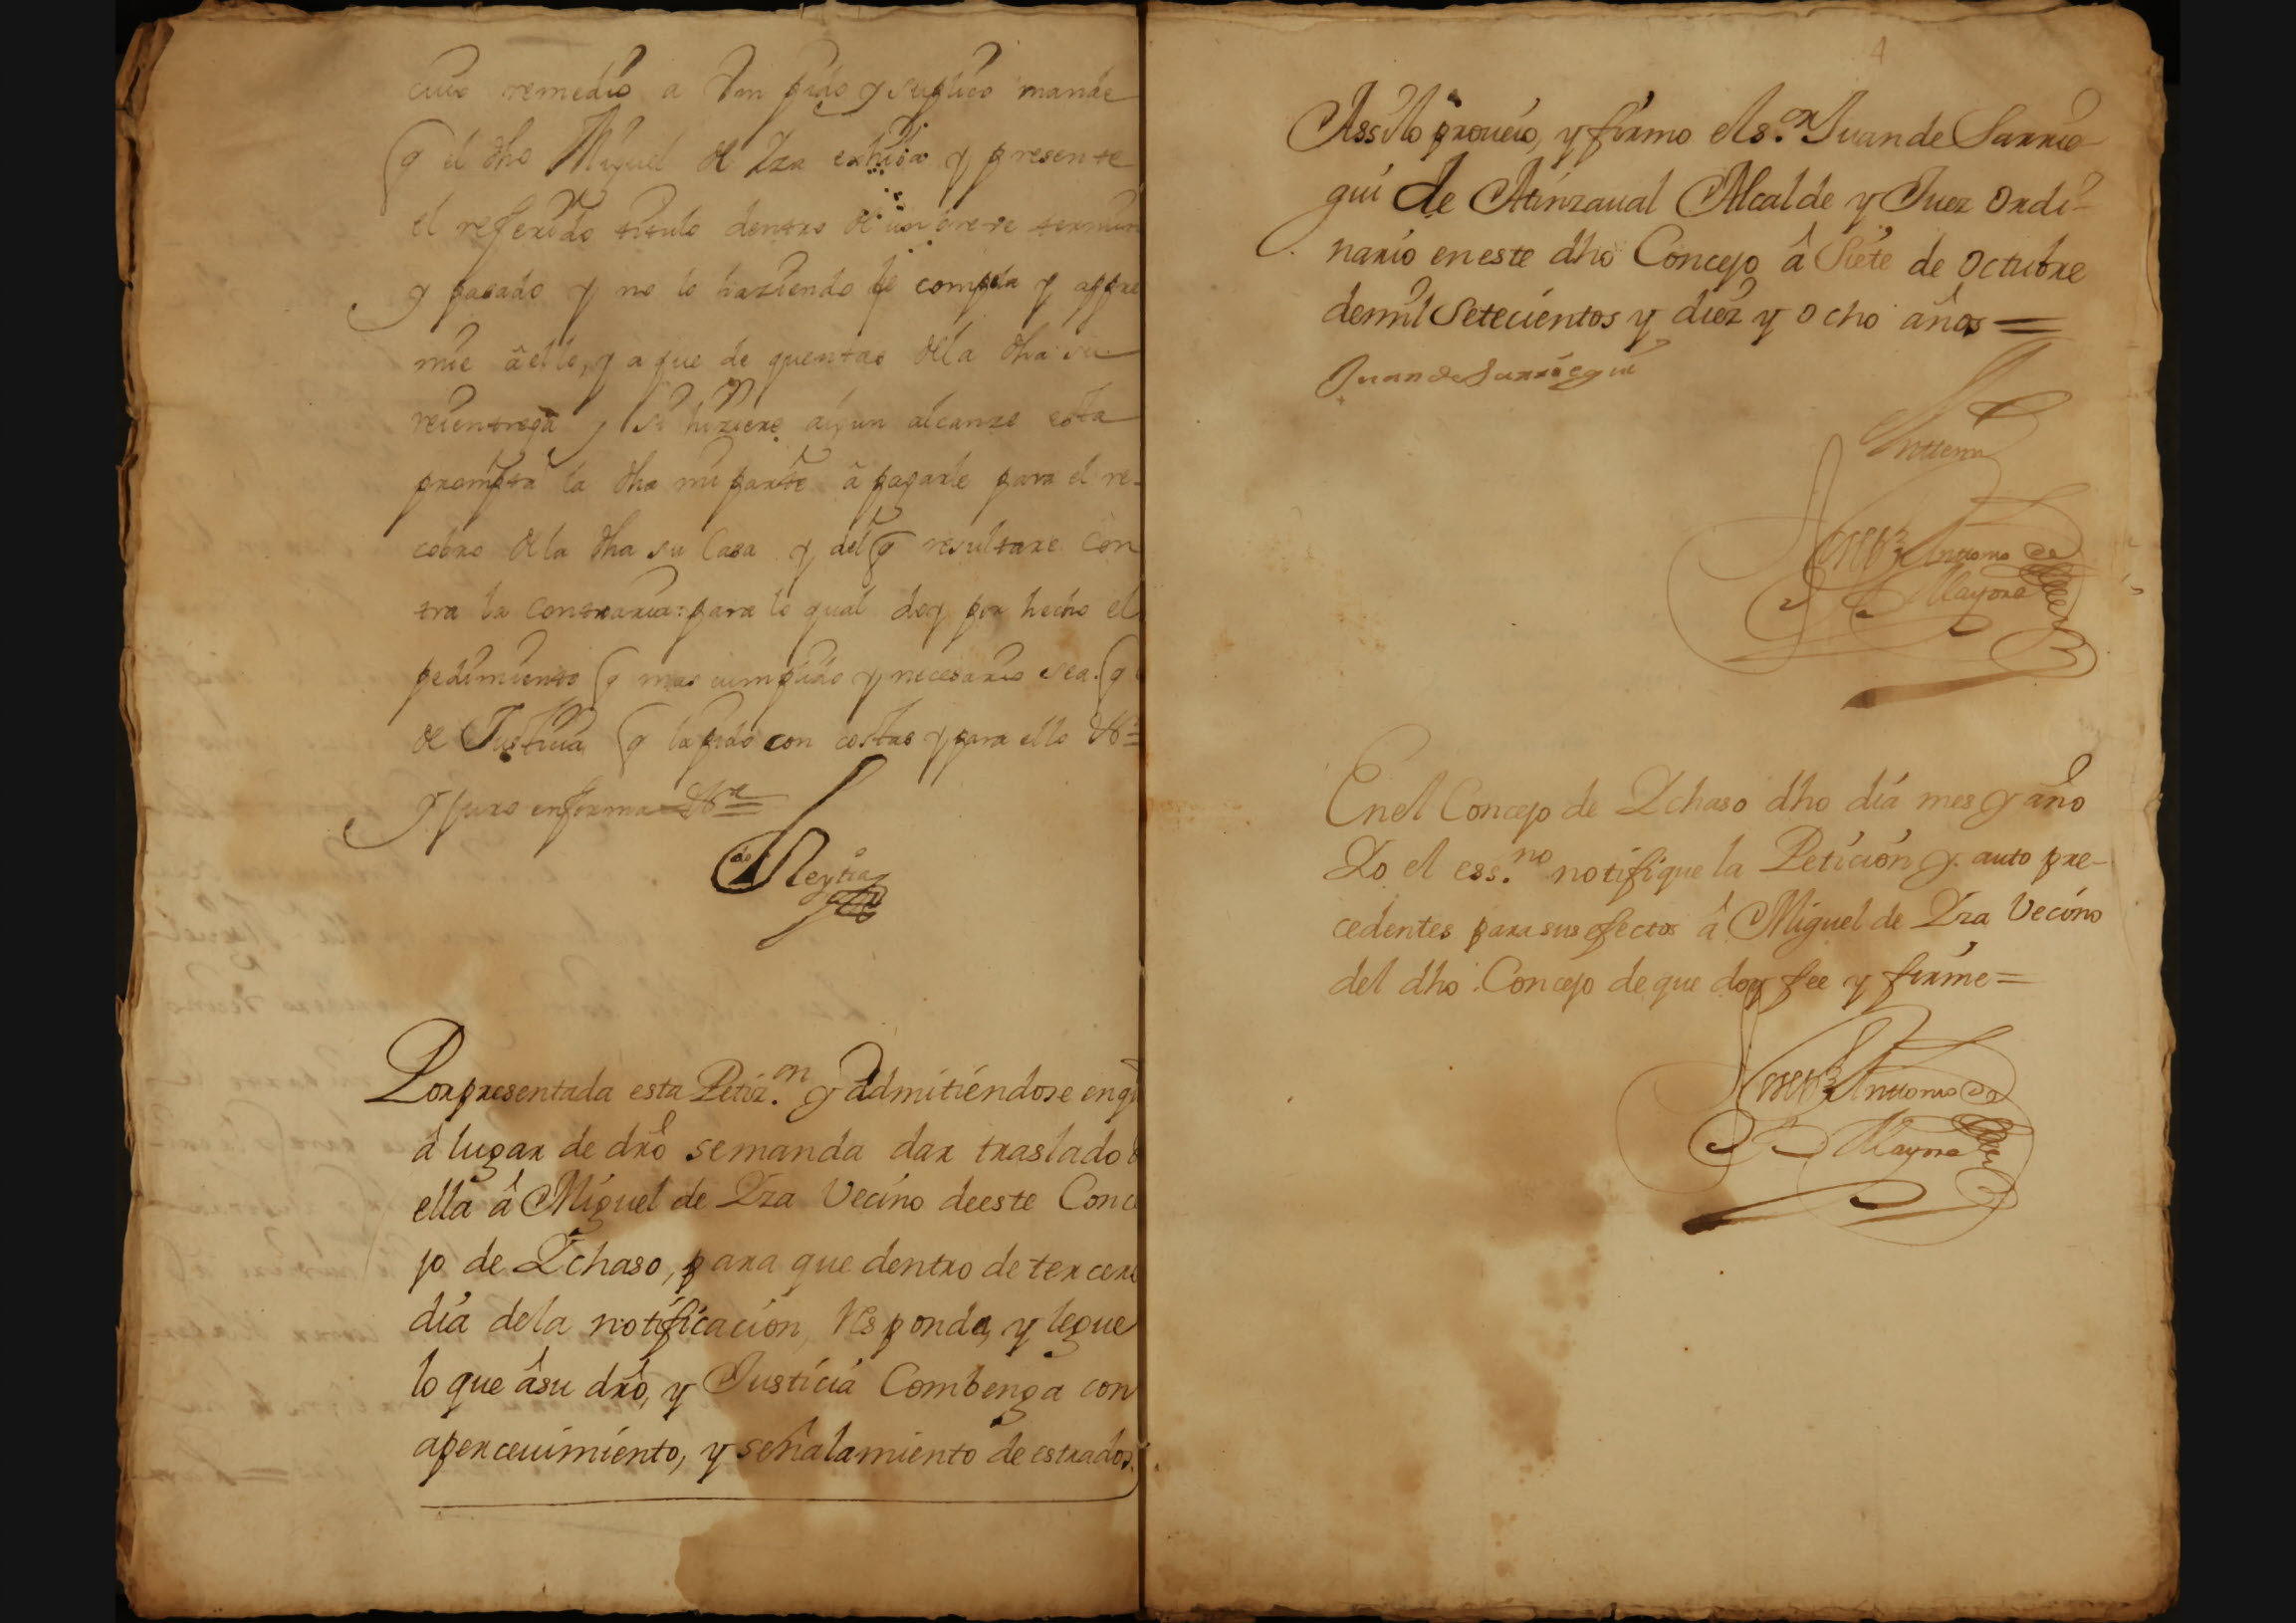 cuio remedio a Vm pido y suplico mande
q el dho Miguel de Yza exhiba y presente
el referido titulo dentro de un breve termin
y pasado y no lo haziendo le compela y appre
mie â ello, y a que de quentas della dha su
reientrega y si hiziere algun alcanze esta
prompta la dha mi parte â pagarle para el re-
cobro de la dha su Casa y del q resultare con
tra la contraria: para lo qual doy por hecho el
pedimiento q mas cumplido y necesario sea. q
de Justicia q la pido con costas y para ello &ª
y juro en forma &ª
Por presentada esta Petiz.on y admitiéndose en q
â lugar de drô se manda dar traslado
ella â Miguel de Yza Vecino de este Conce
jo de Ychaso, para que dentro de tercero
dia de la notificacion, Responda, y legue
lo que â su drô, y Justicia Combenga con
apercevimiento, y señalamiento de estrados
4
Assi lo proueio, y firmo el s.or Juan de Sarrio
gui de Atinzaual Alcalde y Juez Ordi-
nario en este dho Concejo â Siete de Octubre
de mil Setecientos y diez y ocho años =
Juan de Sarrioegui
Antte mi
Antonio de
Mayora
En el Concejo de Ychaso dho dia mes y año
Yo el ess.no notifique la Petición y auto pre-
cedentes para sus efectos â Miguel de Yza Vecino
del dho Concejo de que doy fee y firme =
Anttonio de
Mayora